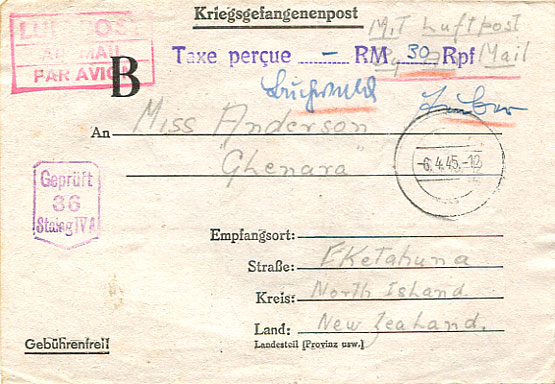 Kriegsgefangenenpost
LUFTPOST
AIR MAIL
PAR AVION
B
M.T Luftpost
By Air Mail
Taxe perçue - RM 30 Rpf
An Miss Anderson
"Ghenara"
-6.4.45.-12
Geprüft
36
Stalag IV A
Empfangsort:
Straße: EKetahuna
Kreis: North Island
Land: New Zealand.
Landesteil (Provinz usw.)
Gebührenfrei!